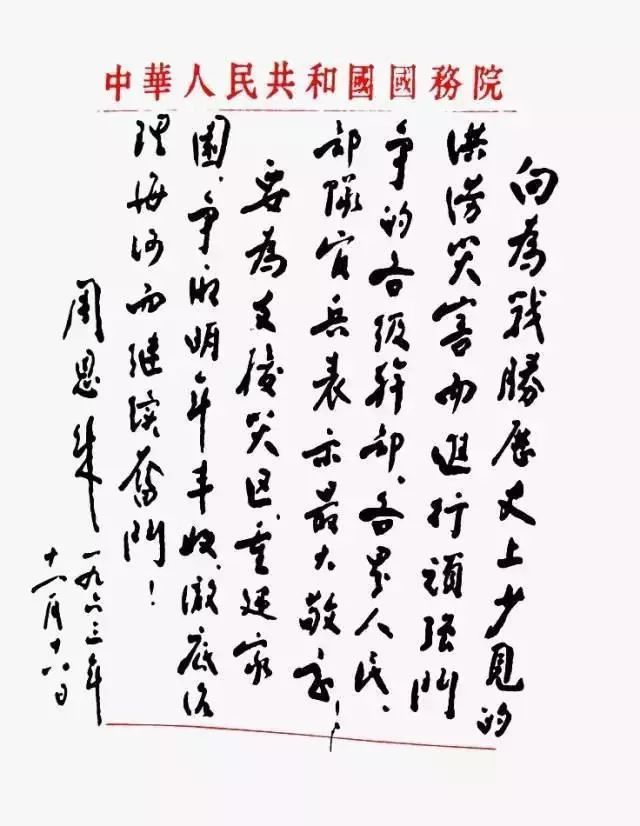 中華人民共和國國務院
向為戰勝歷史上少見的
洪澇災害而進行頑强鬥
争的各级幹部、各界人民、
部隊官兵表示最大敬意!
要為支援災区、重建家
園、争取明年丰收、澈底治
理海河而继续奮鬥!
周恩来
一九六三年
十一月十八日